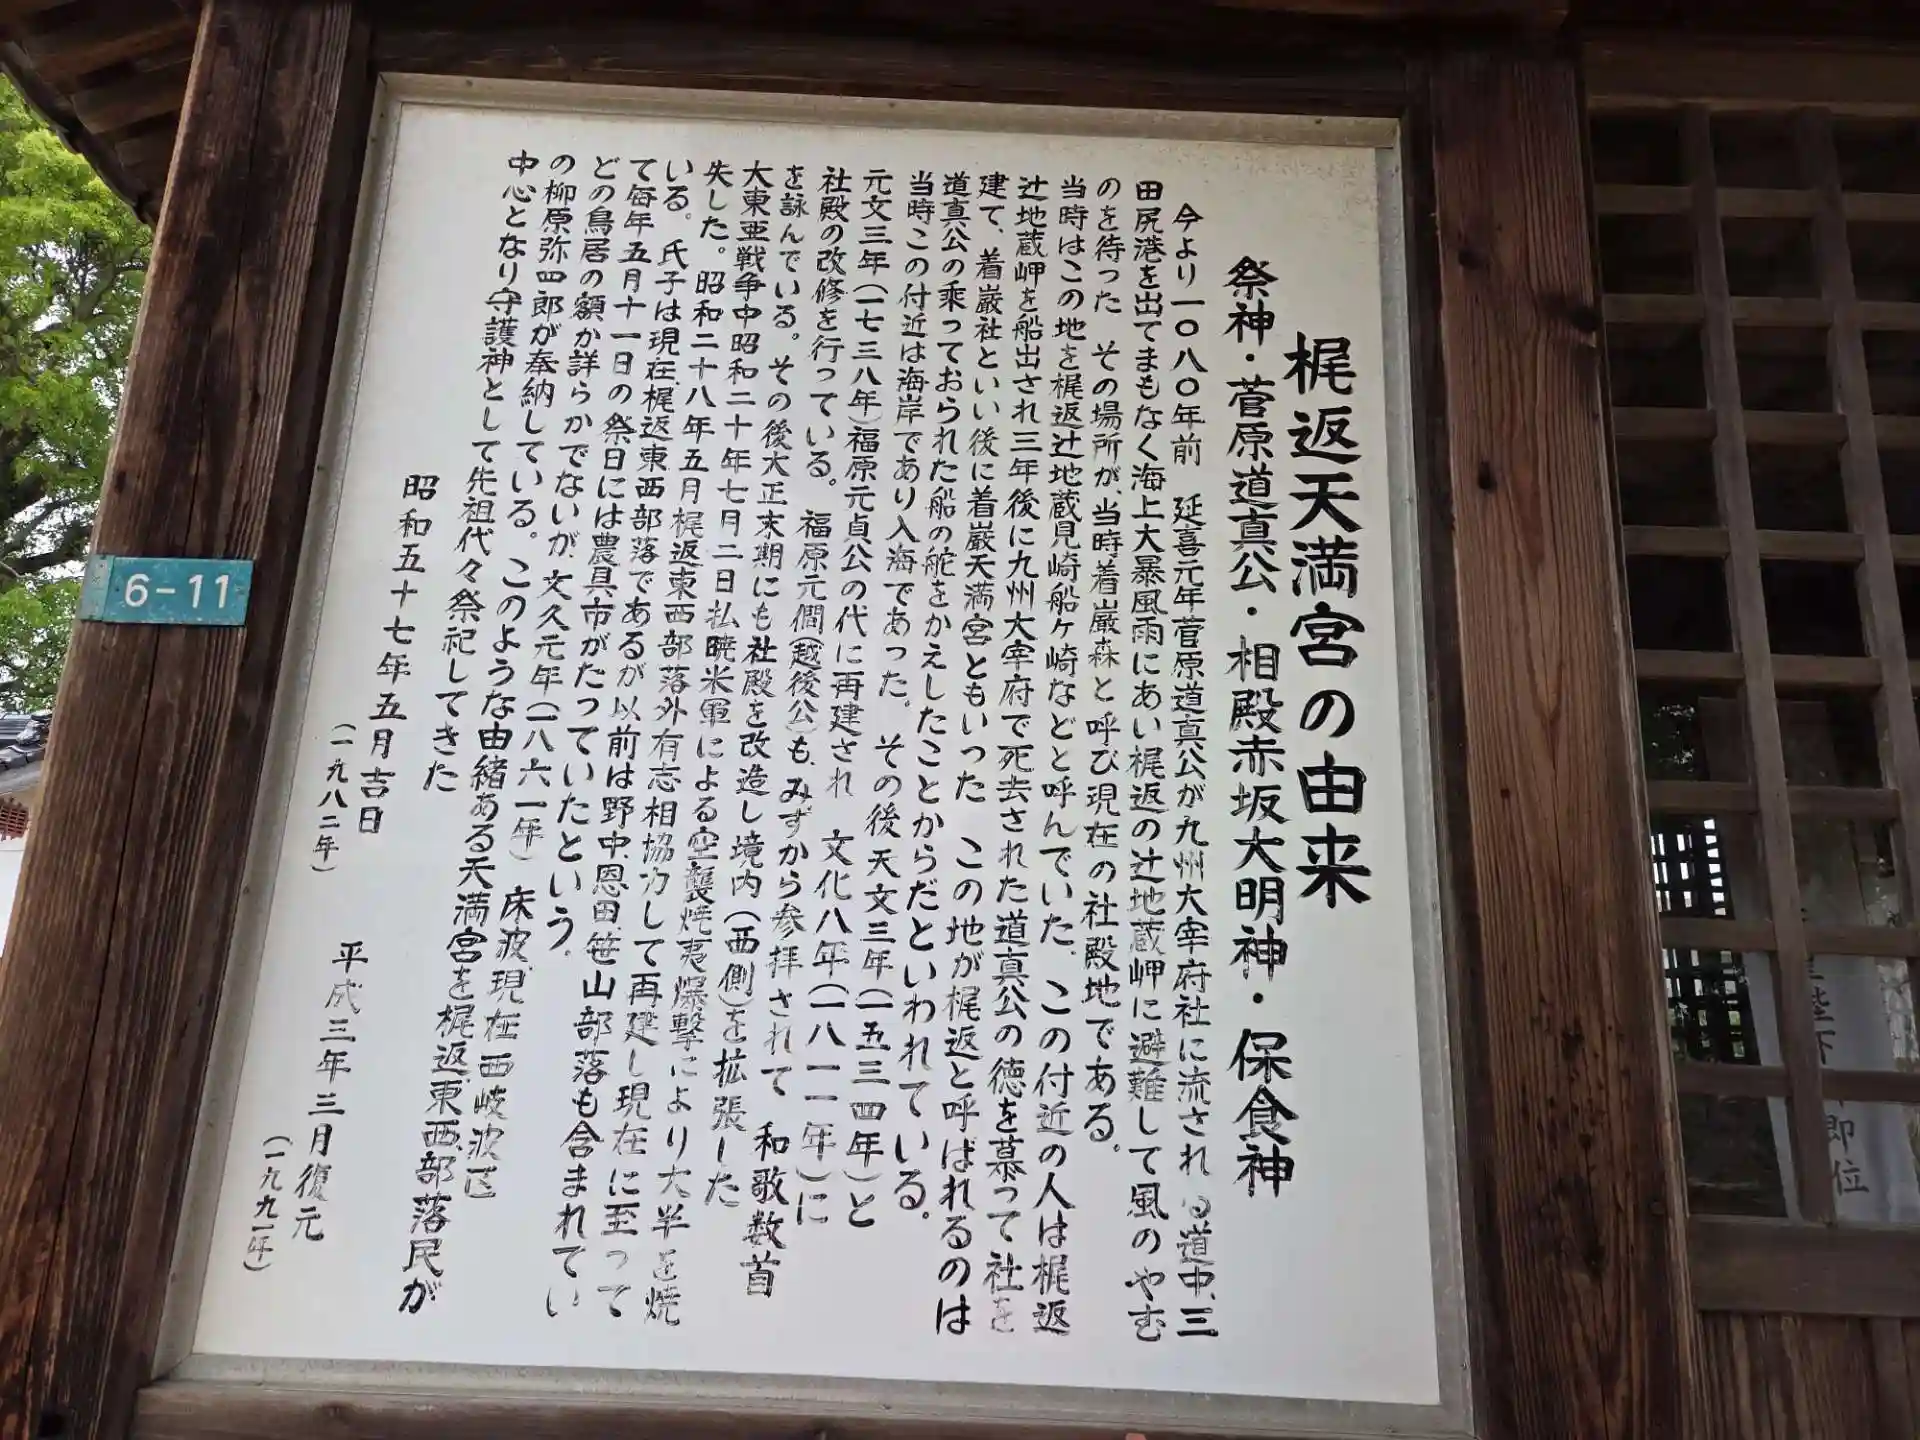 梶返天満宮の由来
祭神・菅原道真公・相殿赤坂大明神・保食神
今より一〇八〇年前　延喜元年菅原道真公が九州大宰府社に流される道中、三
田尻港を出てまもなく海上大暴風雨にあい梶返の辻地蔵岬に避難して風のやむ
のを待った　その場所が、当時、着巌森と呼び現在の社殿地である。
当時はこの地を梶返辻地蔵見崎船ヶ崎などと呼んでいた。この付近の人は梶返
辻地蔵岬を船出され三年後に九州大宰府で死去された道真公の徳を慕って社を
建て、着巌社といい後に着巌天満宮ともいった　この地が梶返と呼ばれるのは
道真公の乗っておられた船の舵をかえしたことからだといわれている。
当時この付近は海岸であり入海であった。その後天文三年（一五三四年）と
元文三年（一七三八年）福原元貞公の代に再建され　文化八年（一八一一年）に
社殿の改修を行っている。福原元僴（越後公）も、みずから参拝されて　和歌数首
を詠んでいる。その後大正末期にも社殿を改造し境内（西側）を拡張した
大東亜戦争中昭和二十年七月二日払暁米軍による空襲焼夷爆撃により大半を焼
失した。昭和二十八年五月梶返東西部落外有志相協力して再建し現在に至って
いる。氏子は現在、梶返東西部落であるが以前は野中、恩田、笹山部落も含まれてい
て毎年五月十一日の祭日には農具市がたっていたという。
どの鳥居の額か詳らかでないが、文久元年（一八六一年）　床波、現在西岐波区
の柳原弥四郎が奉納している。このような由緒ある天満宮を梶返東西部落民が
中心となり守護神として先祖代々祭祀してきた
昭和五十七年五月吉日
（一九八二年）
平成三年三月復元
（一九九一年）
6-11
陛下
即位